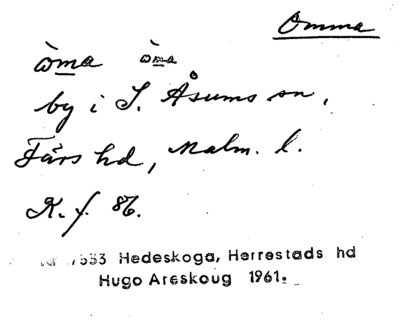 Omma
òma òma
by i S. Åsums sn,
Färs hd, Malm. l.
K. f. 86.
7553 Hedeskoga, Herrestads hd
Hugo Areskoug 1961.